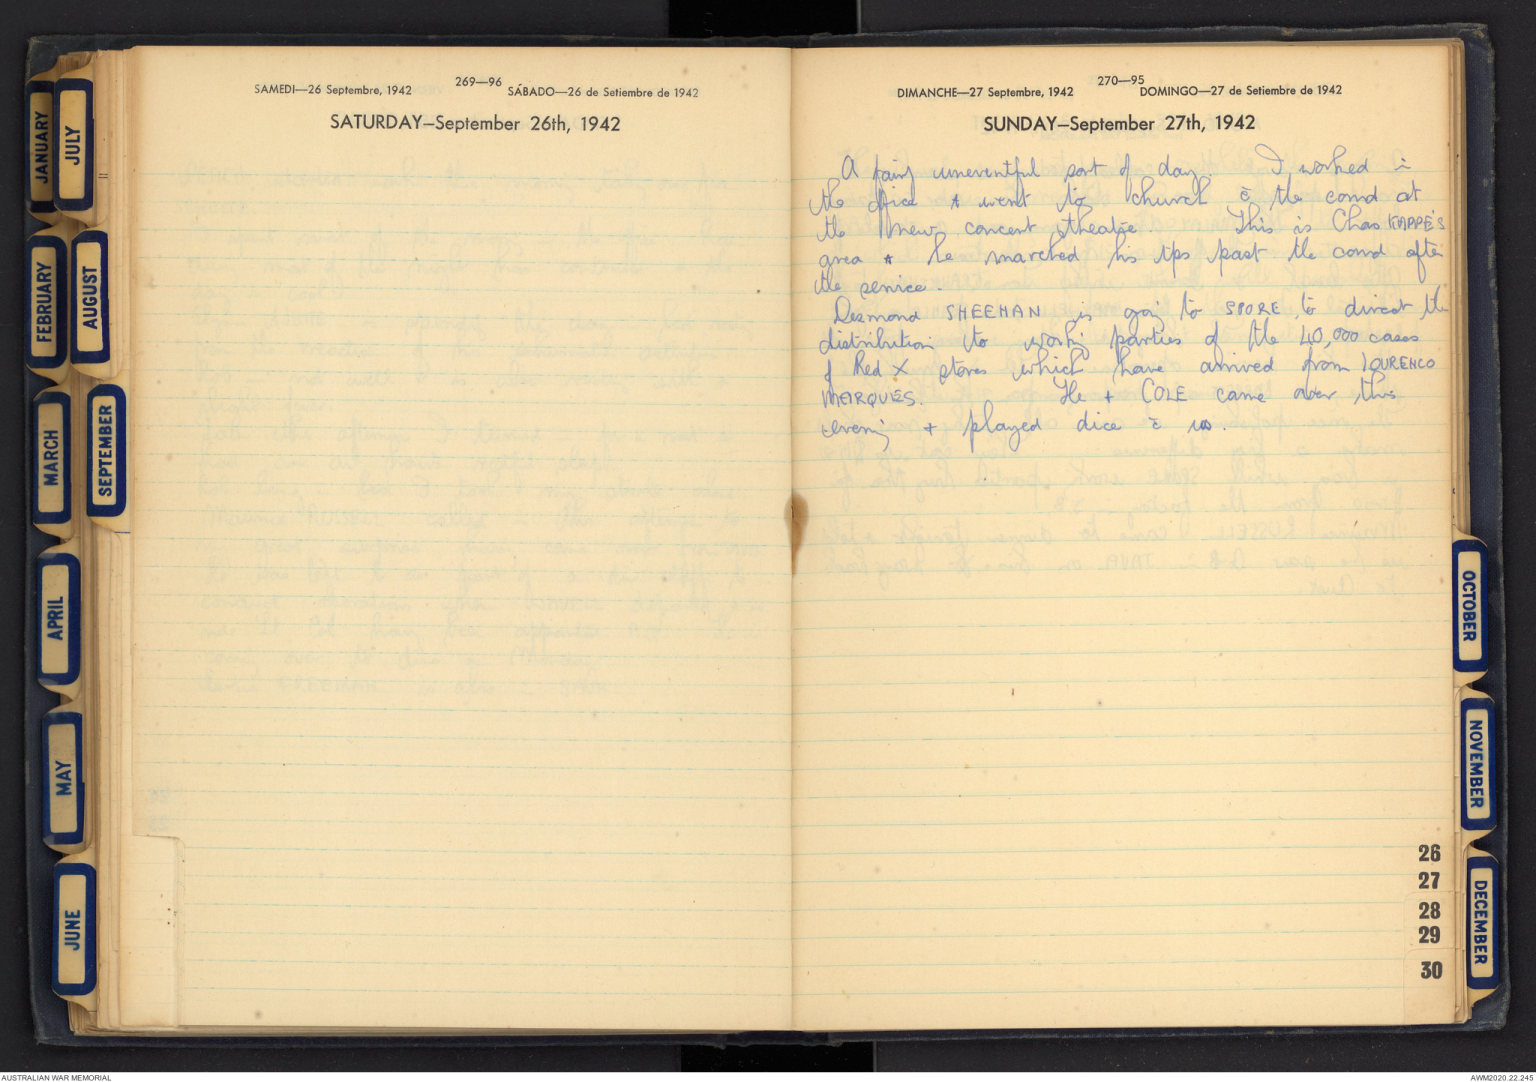 SAMEDI—26 Septembre, 1942
269—96
SÁBADO—26 de Setiembre de 1942
SATURDAY—September 26th, 1942
DIMANCHE—27 Septembre, 1942
270—95
DOMINGO—27 de Setiembre de 1942
SUNDAY—September 27th, 1942
A fairly uneventful sort of day. I worked in
the office & went to church c̄ the comd at
the new concert theatre This is Chas KAPPE'S
area & he marched his tps past the comd after
the service.
Desmond SHEEHAN is going to SPORE, to direct the
distribution to working parties of the 40,000 cases
of Red X stores which have arrived from LOURENCO
MARQUES. He + COLE came over this
evening + played dice c̄ us.
JANUARY
JULY
FEBRUARY
AUGUST
MARCH
SEPTEMBER
APRIL
MAY
JUNE
OCTOBER
NOVEMBER
DECEMBER
26
27
28
29
30
AUSTRALIAN WAR MEMORIAL
AWM2020.22.245